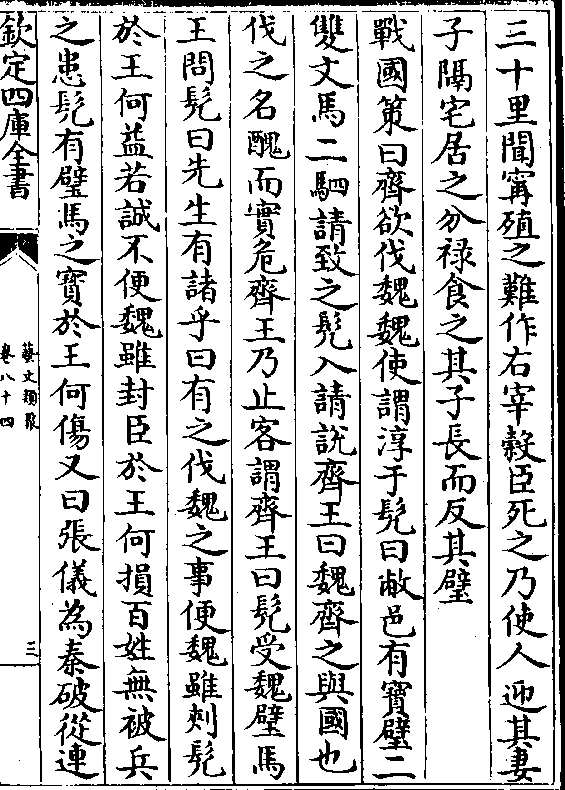 三十里聞甯殖之難作右宰穀臣死之乃使人迎其妻
子隔宅居之分禄食之其子長而反其璧
戰國策曰齊欲伐魏魏使謂淳于髠曰敝邑有寳璧二
雙文馬二駟請致之髠入請說齊王曰魏齊之與國也
伐之名醜而實危齊王乃止客謂齊王曰髠受魏璧馬
王問髠曰先生有諸乎曰有之伐魏之事便魏雖刾髠
於王何益若誠不便魏雖封臣於王何損百姓無被兵
之患髠有璧馬之寳於王何傷又曰張儀為秦破從連
欽定四庫全書
藝文類聚
卷八十四
三